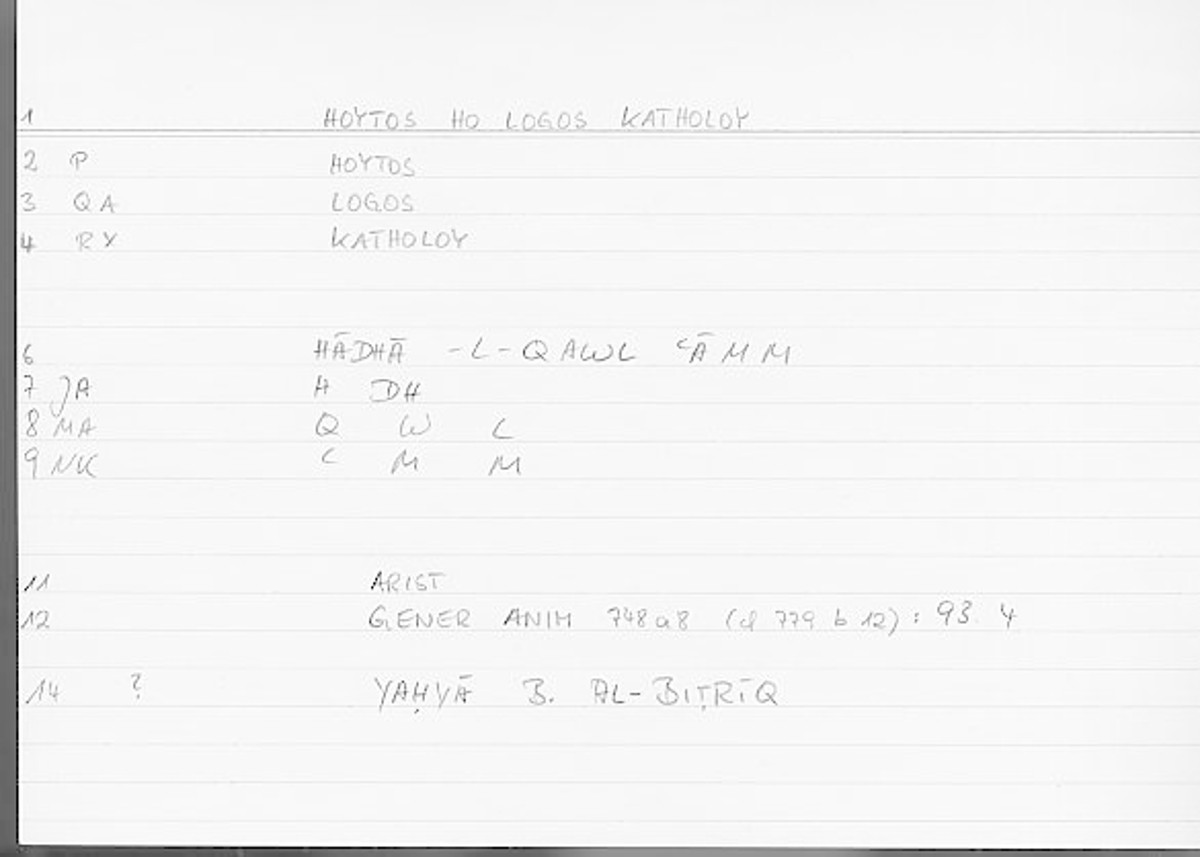 1 HOYTOS HO LOGOS KATHOLOY
2 P HOYTOS
3 QA LOGOS
4 RX KATHOLOY
6 HĀDHĀ -L-QAWL ʿĀMM
7 JA H DH
8 MA Q W L
9 NK ʿ M M
11 ARIST
12 GENER ANIM 748a8 (cf 779 b 12) : 93. 4
14 ? YAḤYĀ B. AL-BIṬRĪQ